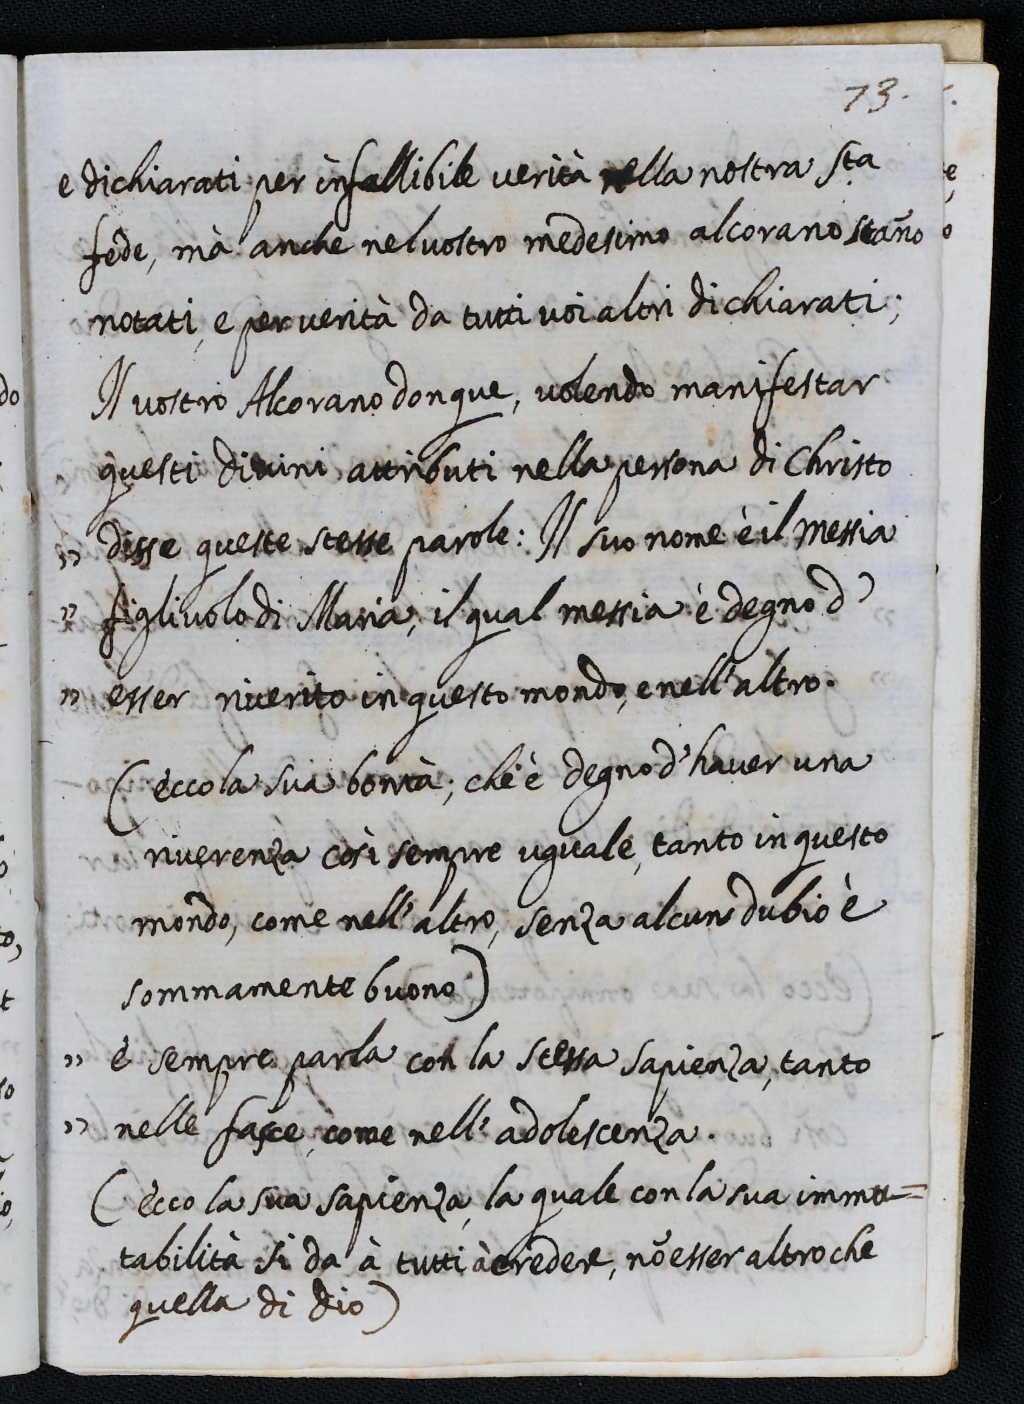 73.
e dichiarati per infallibile verità nella nostra Sta
fede, mà anche nel vostro medesimo alcorano stano
notati, e per verità da tutti voi altri dichiarati;
Il vostro Alcorano donque, volendo manifestar
questi divini attributi nella persona di Christo
" disse queste stesse parole: Il suo nome è il Messia
" figlivolo di Maria, il qual messia è degno d'
" esser riverito in questo mondo, e nell'altro.
(ècco la sua bontà; ché è degno d'haver una
riverenza cosi sempre uguale, tanto in questo
mondo, come nell'altro, senza alcun dubio è
sommamente buono)
" è sempre parla con la stessa sapienza, tanto
" nelle fasce, come nell'adolescenza.
(ècco la sua sapienza, la quale con la sua immu=
tabilità si da à tutti à credere, nõ esser altro che
quella di dio)